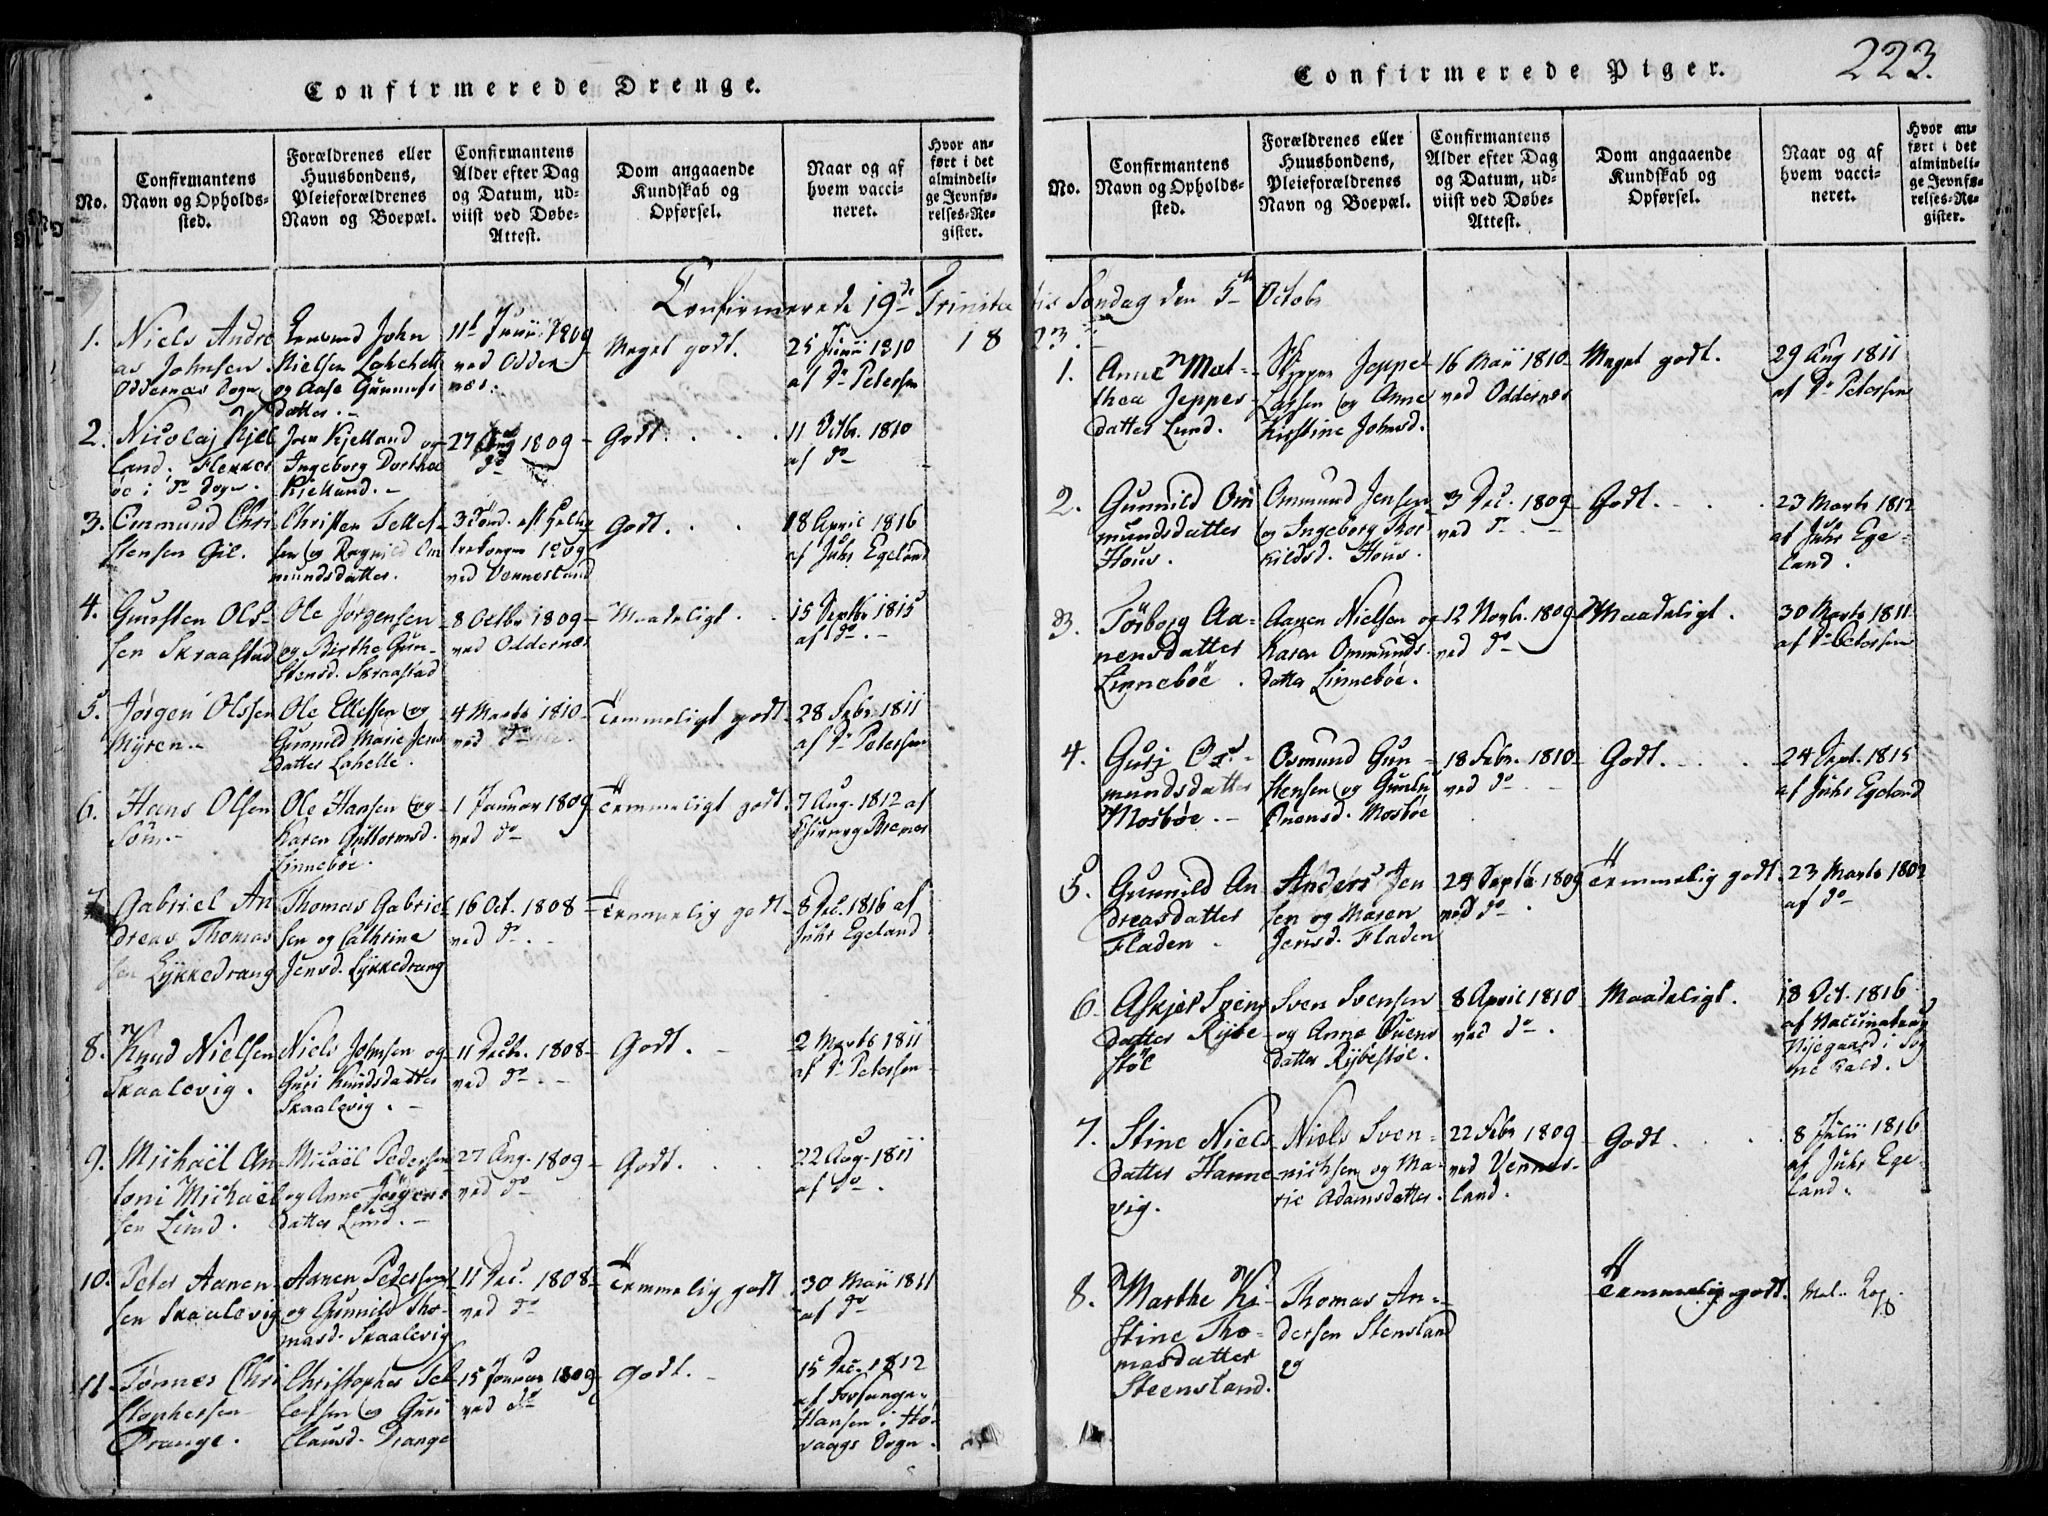 Confirmerede Drenge.
No.
Confirmantens
Navn og Opholds-
sted.
Forældrenes eller
Huusbondens,
Pleieforældrenes
Navn og Boepæl.
Confirmantens
Alder efter Dag
og Datum, ud-
viist ved Døbe-
Attest.
Dom angaaende
Kundskab og
Opførsel.
Naar og af
hvem vacci-
neret.
Hvor an-
ført i det
almindeli-
ge Jevnfø-
relses-Re-
gister.
Confirmerede 19de Trinita
18
1.
Niels Andre
as Johnsen.
Oddernæs Sogn
John
Nielsen Lahelle
og Aase Gunnufs
datter.-
11te Junii 1809
ved Odder
næs.
Meget godt.
25 Junii 1810
af Dr Petersen
2.
Nicolaj Kjel
land. Flekker
öe i do Sogn.
Jon Kjelland og
Ingeborg Dorthea
Kielland.-
27 Aug 1809
do
Godt.
11 Octbr. 1810
af do
3.
Ommund Chri
stensen Gil.
Christen Tellef
sen og Ragnild Om
mundsdatter.
3 Sønd. eft Hellig
trekonger 1809
ved Vennesland
Godt.
18 April 1816
af Juhr Egeland
4.
Gunsten Ols-
sen Skraastad
Ole Jørgensen
og Birthe Gun-
stensd. Skraastad
8 Octbr 1809
ved Oddernæs
Maadeligt.
15 Septbr 1815
af do.-
5.
Jørgen Olssen
Myren.-
Ole Ellefsen og
Gunnild Marie Jens
datter Lahelle.
4 Marts 1810
ved do
Temmeligt godt
28 Febr. 1811
af Dr Petersen
6.
Hans Olsen
Ole Hansen og
Karen Guttormsd.
Linnebøe.
1 Januar 1809
ved do
Temmeligt godt.
7 Aug. 1812 af
7.
Gabriel An
dreas Thomas
sen Lykkedrang
Thomas Gabriel
sen og Cathrine
Jensd. Lykkedrang
16 Oct. 1808
ved do.-
Temmelig godt
8 Dec. 1816 af
Juhr Egeland
8.
Knud Nielsen
Skaalevig.
Niels Johnsen og
Guri Knudsdatter
Skaalevig.-
11 Decbr. 1808
ved do.-
Godt.
2 Marts 1811
af Dr Petersen
9.
Michaël An
toni Michaël
sen Lund.
Micaël Pedersen
og Anne Jörgens
datter Lund.-
27 Aug. 1809
ved do
Godt.
22 Aug. 1811
af do.
10.
Peter Aanen
sen Skaalevig
Aanen Pedersen
og Gunnild Tho-
masd. Skaalevig
11 Dec. 1808
ved do
Temmelig godt
30 Maii 1811
af do
11
Tønnes Chri
stophersen
Drange.
Christopher Tel
lefsen og Guri
Clausd. Drange
15 Januar 1809
ved do
Godt.
15 Dec. 1812
af
Hansen i Hö-
vaags Sogn.
Confirmerede Piger.
223.
No.
Confirmantens
Navn og Opholds-
sted.
Forældrenes eller
Huusbondens,
Pleieforældrenes
Navn og Boepæl.
Confirmantens
Alder efter Dag
og Datum, ud-
viist ved Døbe-
Attest.
Dom angaaende
Kundskab og
Opførsel.
Naar og af
hvem vacci-
neret.
Hvor an-
ført i det
almindeli-
ge Jevnfø-
relses-Re-
gister.
tis Søndag den 5te Octobr
23.
1.
Anne Mat-
thea Jeppes-
datter Lund.
Skipper Jeppe
Larsen og Anne
Kirstine Johnsd.
16 Maii 1810
ved Oddernæs
Meget godt.
29 Aug 1811
af Dr Petersen
2.
Gunnild Om
mundsdatter
Hous.
Ommund Jensen
og Ingeborg Thor
kildsd. Hous.
3 Dec. 1809
ved do
Godt.
23 Marts 1812
af Juhr Ege-
land.
3.
Törborg Aa-
nensdatter
Linneböe.
Aanen Nielsen og
Karen Ommunds
datter Linneböe.
12 Novbr. 1809
ved do
Maadeligt.
30 Marts 1811
af Dr Petersen
4.
Guri Os-
mundsdatter
Mosböe.-
Osmund Gun-
stensen og Gunild
Onensd. Mosböe
18 Febr. 1810
ved do
Godt.
24 Sept. 1815
af Juhr Egeland
5.
Gunnild An
dreasdatter
Fladen.
Anders Jen
sen og Maren
Jensd. Fladen
24 Septb 1809
ved do
Temmelig godt.
23 Marts 1802
af do
6.
Askjer Svens
datter Rybe
stöl
Sven Svensen
og Anne Ouens
datter Rybestöe.
8 April 1810
ved do.
Maadeligt.
18 Oct. 1816
af Vaccinateur
Nyegaard i Sog
ne Kald.
7.
Stine Niels
datter Hanne
vig.
Niels Sven-
nichsen og Ma-
rie Adamsdatter.
22 Febr 1809
ved Vennes-
land.
Godt.
8 Julii 1816
af Juhr Ege-
land.
8.
Marthe Ki-
stine Tho-
masdatter
Steensland.
Thomas An-
dersen Stensland
og
Temmelig godt.